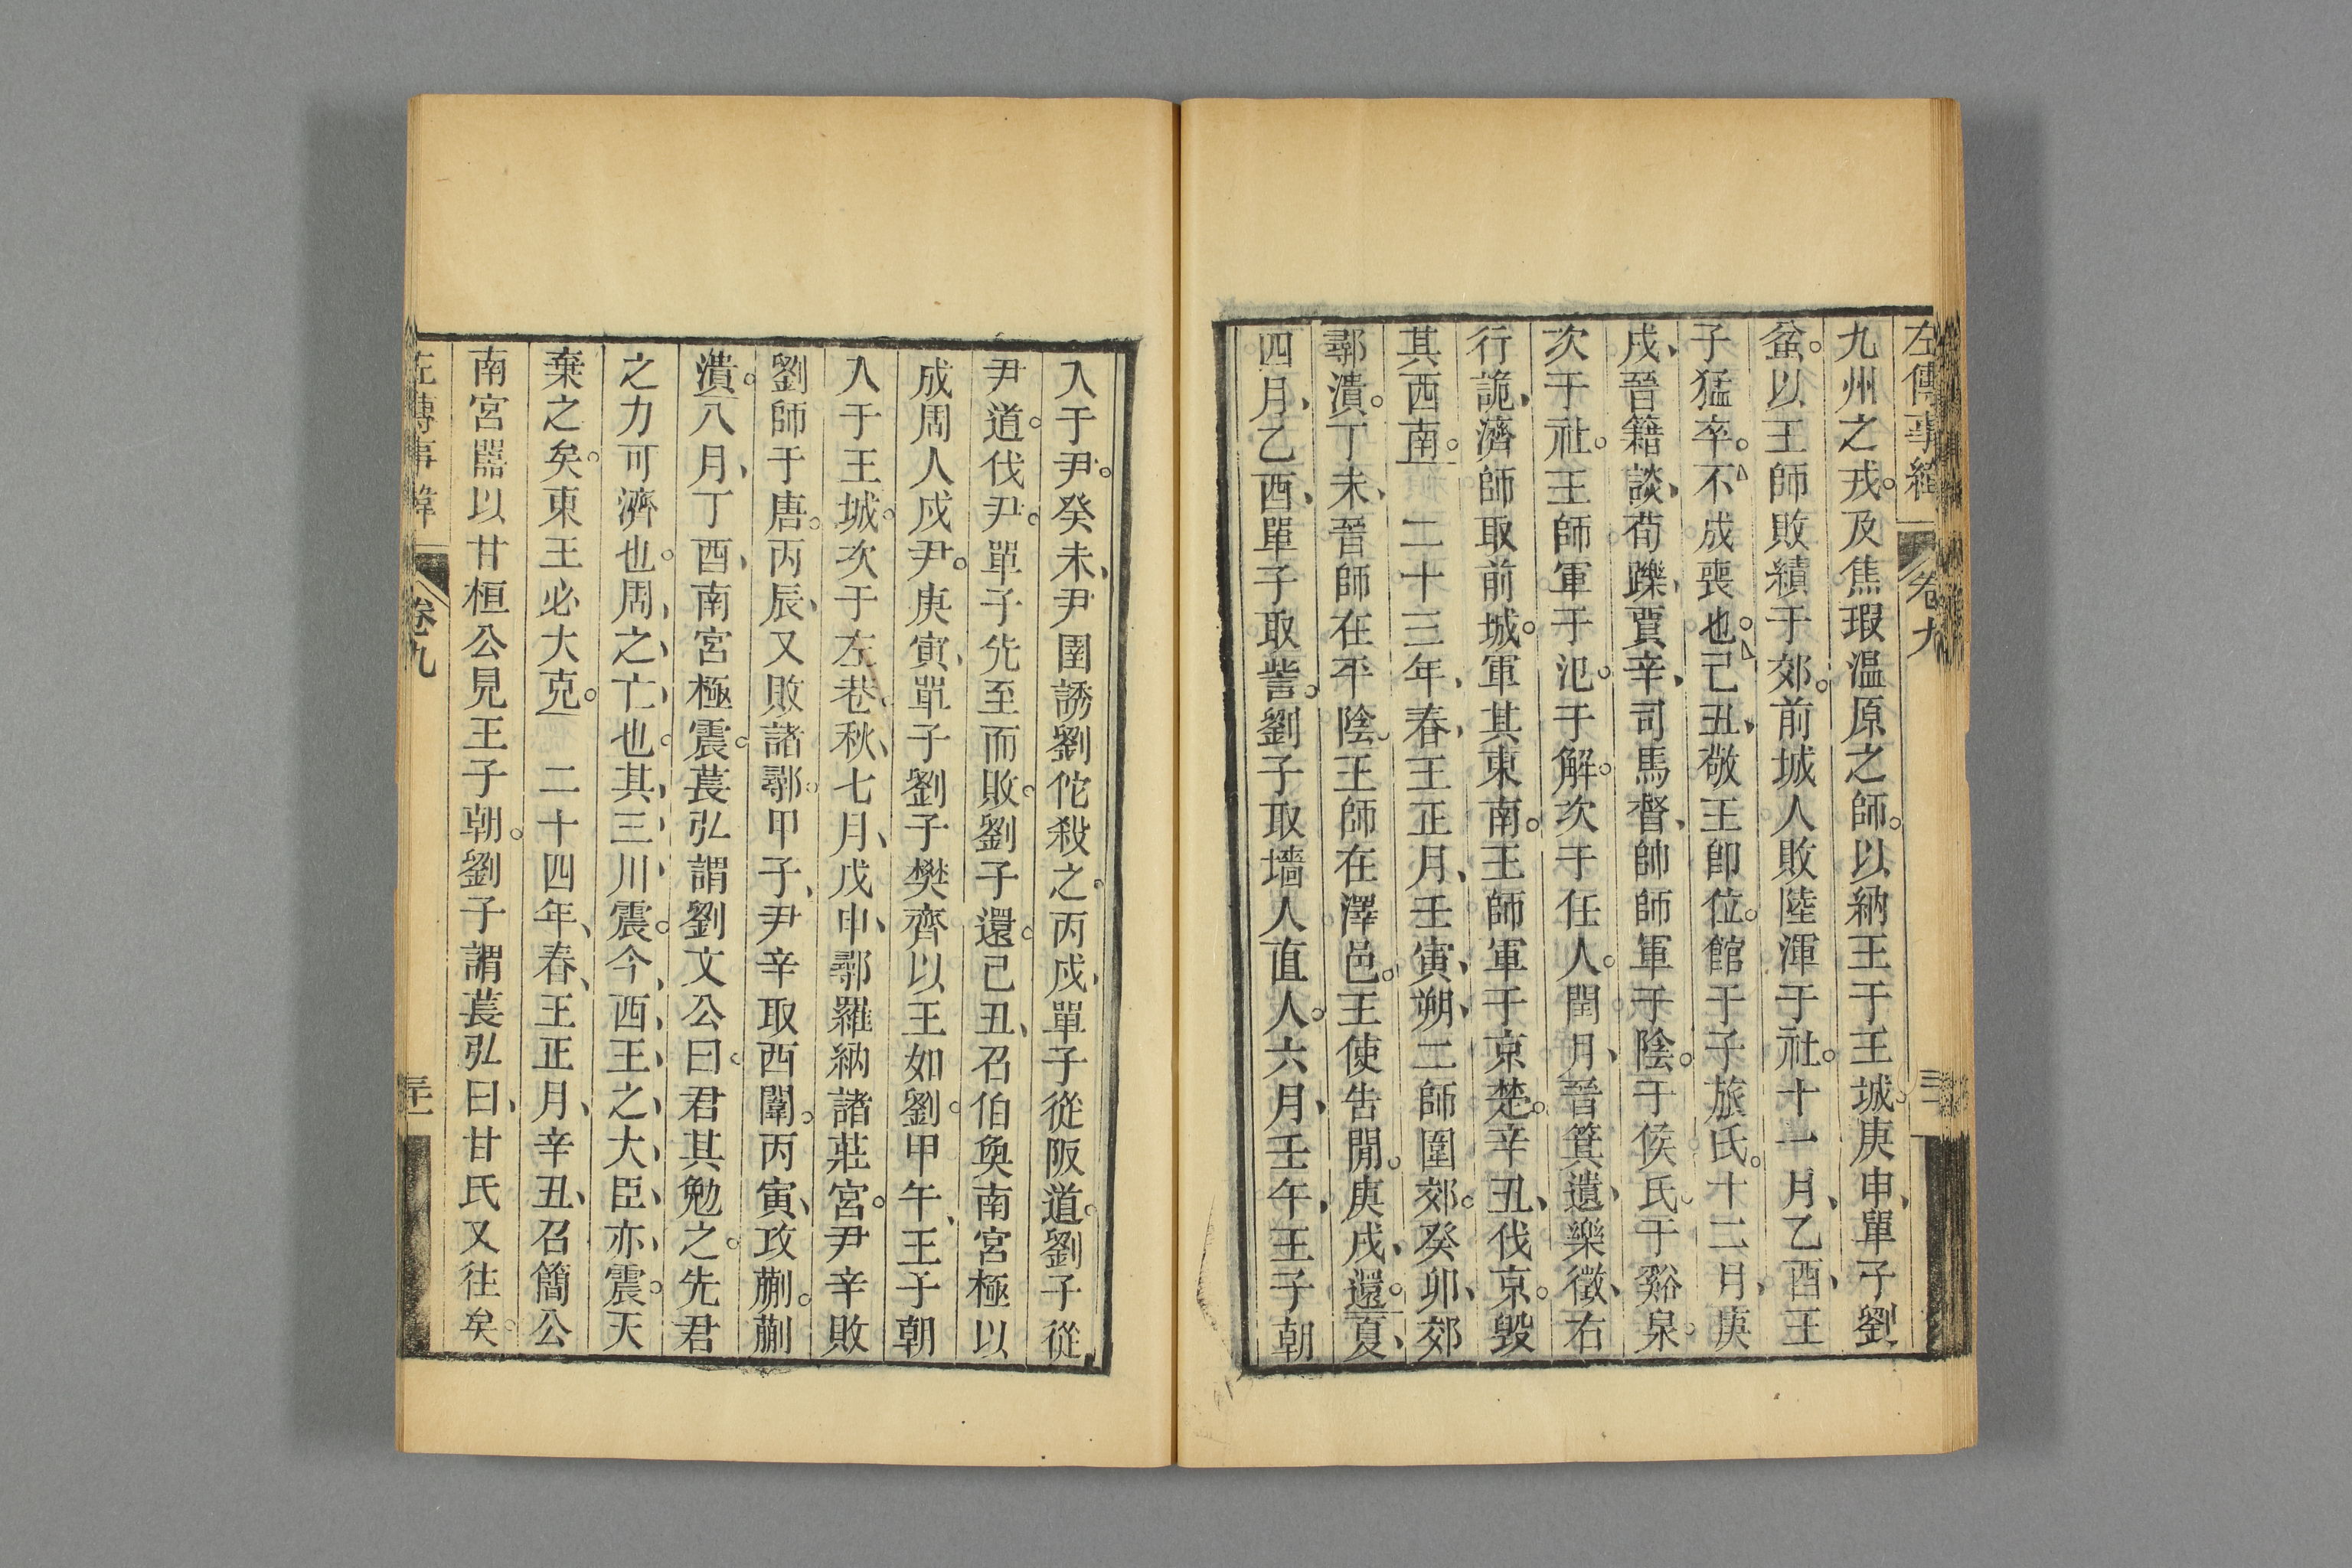 左傳事緯 卷九
九州之戎。及焦瑕溫原之師。以納王于王城。庚申、單子劉
蚠。以王師敗績于郊。前城人敗陸渾于社。十一月、乙酉、王
子猛卒。不成喪也。己丑、敬王卽位。館于子旅氏。十二月、庚
戌、晉籍談、荀躒、賈辛、司馬督、帥師軍于陰。于侯氏。于谿泉。
次于社。王師軍于氾。于解。次于任人。閏月、晉箕遺、樂徵、右
行詭、濟師取前城。軍其東南。王師軍于京楚。辛丑、伐京。毀
其西南。 二十三年、春、王正月、壬寅、朔、二師圍郊。癸卯、郊
鄩潰。丁未、晉師在平陰。王師在澤邑。王使告閒。庚戌、還。夏、
四月、乙酉、單子取訾。劉子取墻人直人。六月、壬午、王子朝
入于尹。癸未、尹圉誘劉佗殺之。丙戌、單子從阪道。劉子從
尹道。伐尹。單子先至而敗。劉子還。己丑、召伯奐南宮極以
成周人戍尹。庚寅、單子劉子樊齊以王如劉。甲午、王子朝
入于王城。次于左巷。秋、七月、戊申、鄩羅納諸莊宮。尹辛敗
劉師于唐。丙辰、又敗諸鄩。甲子、尹辛取西闈。丙寅、攻蒯。蒯
潰。八月、丁酉、南宮極震。萇弘謂劉文公曰。君其勉之。先君
之力可濟也。周、之、亡、也。其、三、川、震。今、西、王、之、大、臣、亦、震。天
棄之矣。東王必大克。 二十四年、春、王正月、辛丑、召簡公
南宮嚚以甘桓公見王子朝。劉子謂萇弘曰、甘氏又往矣。
左傳事緯 卷九